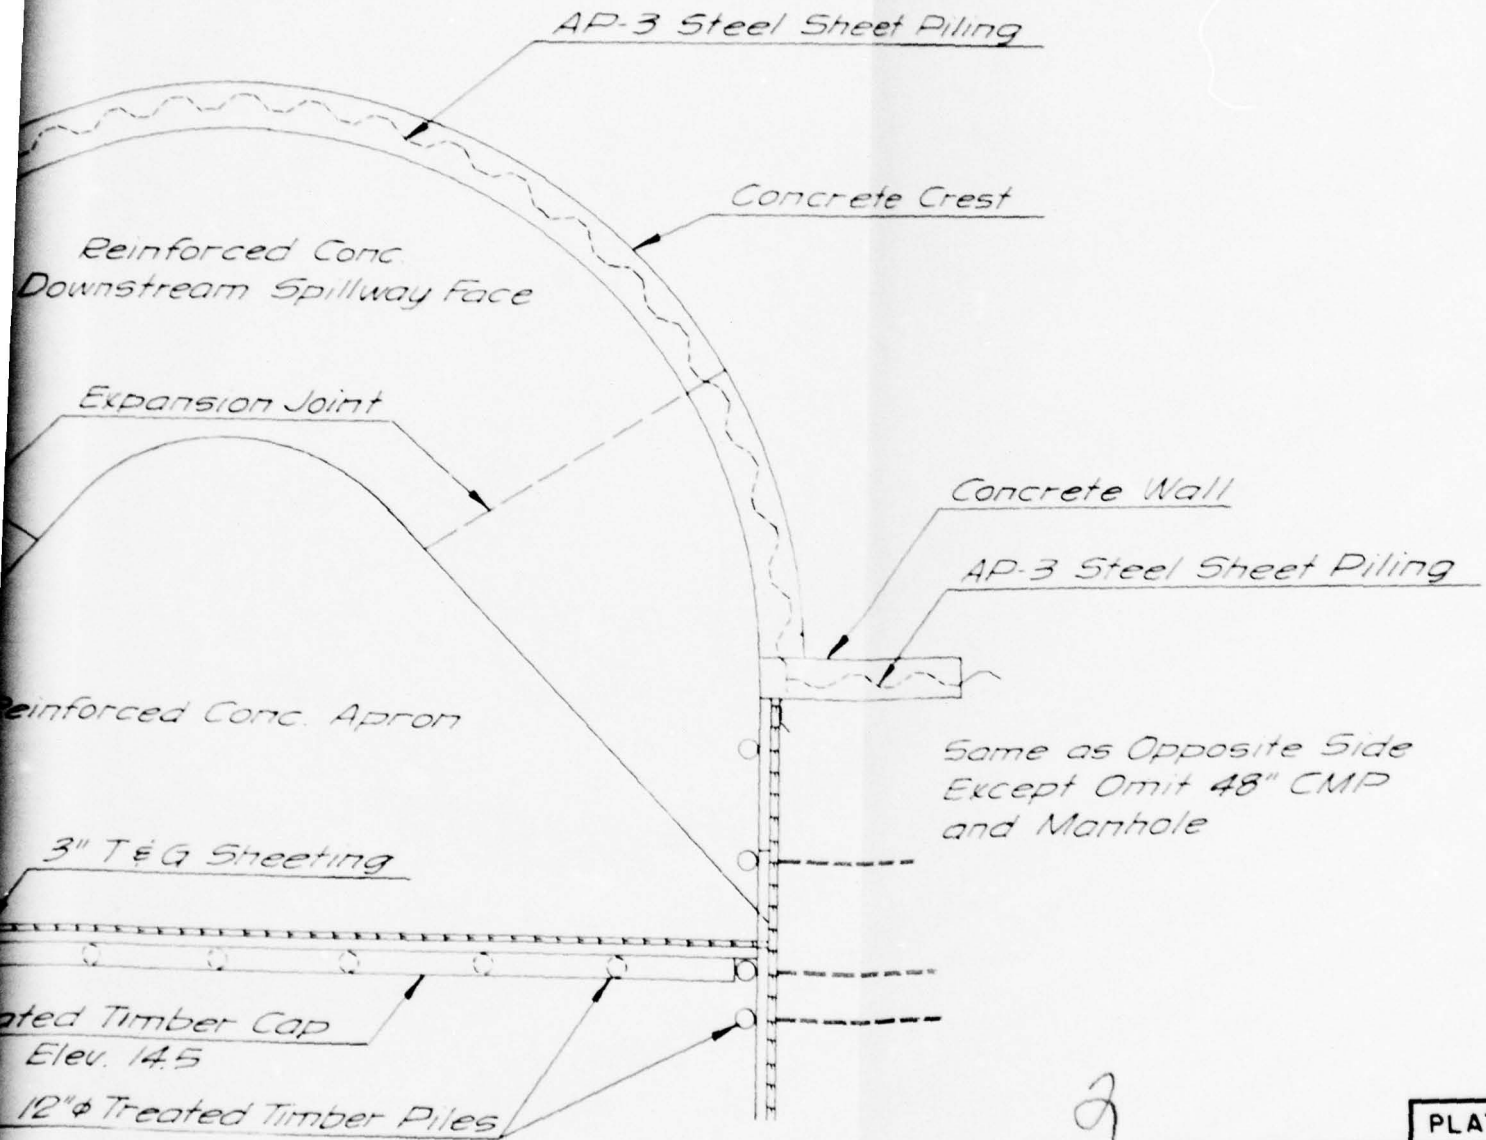 AP-3 Steel Sheet Piling
Concrete Crest
Reinforced Conc.
Downstream Spillway Face
Expansion Joint
Concrete Wall
AP-3 Steel Sheet Piling
einforced Conc. Apron
Same as Opposite Side
Except Omit 48" CMP
and Manhole
3" T & G Sheeting
ated Timber Cap
Elev. 14.5
12"ϕ Treated Timber Piles
2
PLA